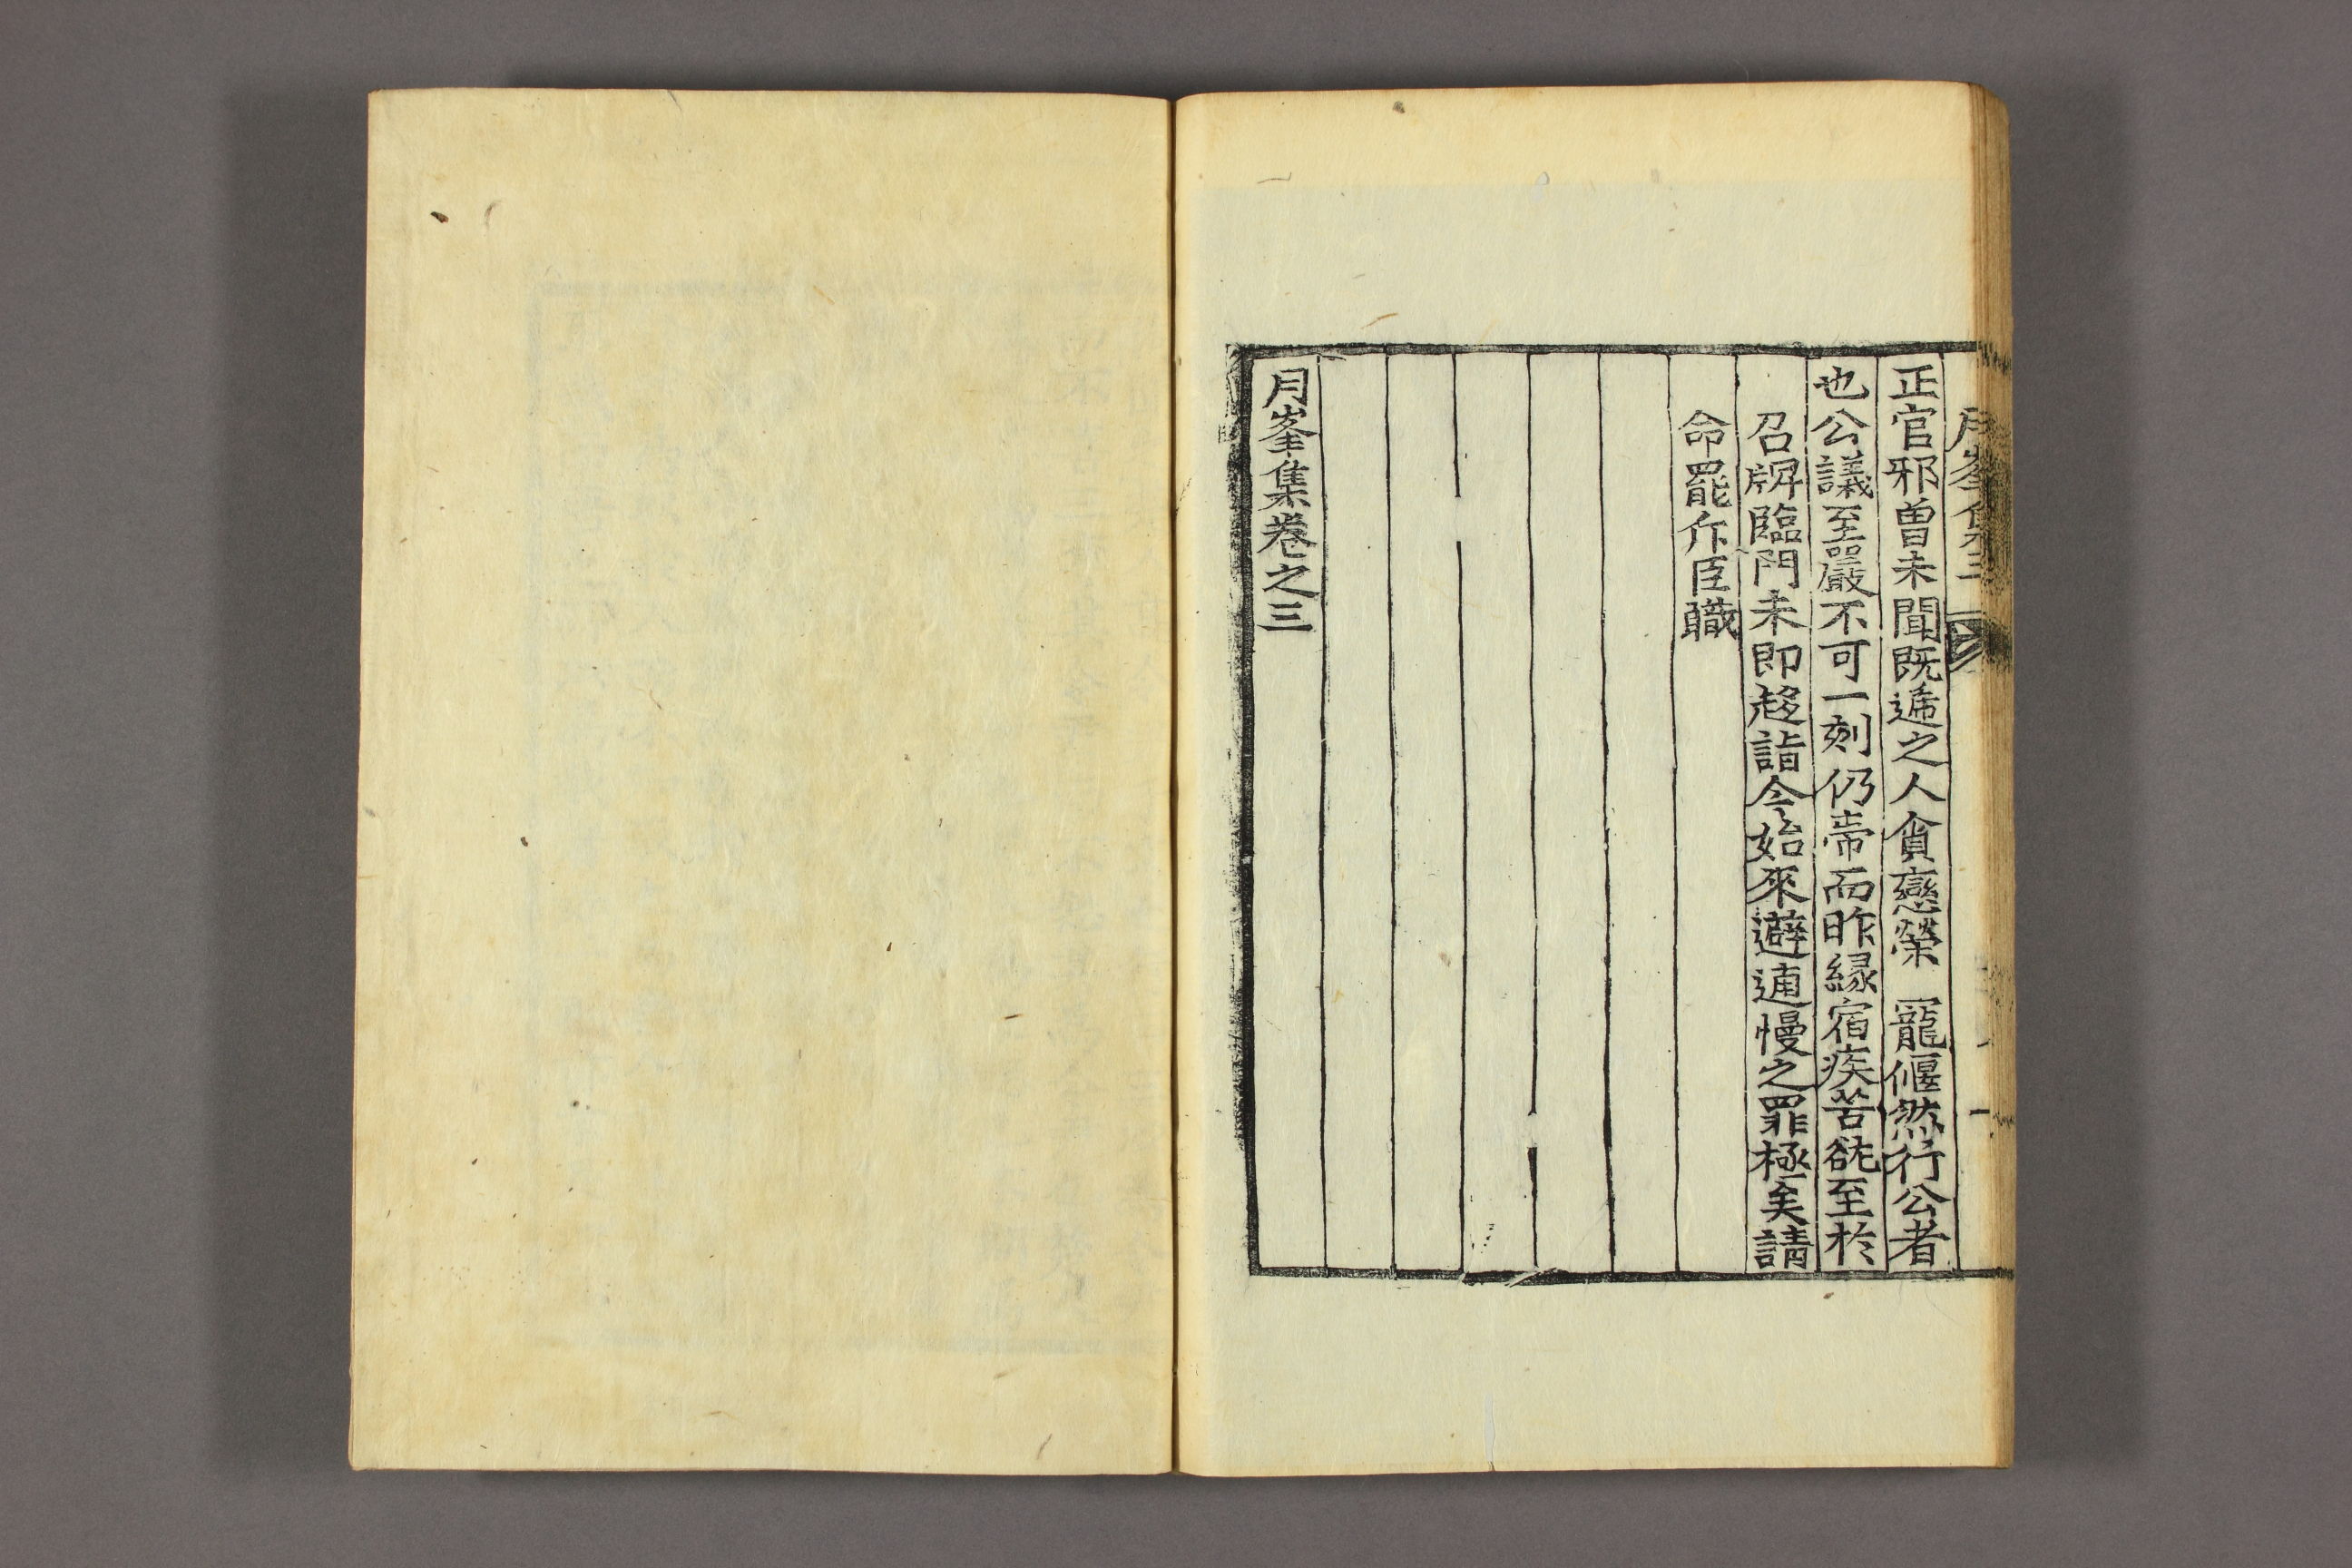 月峯集三
正官邪曽未聞既遞之人貪戀榮 寵偃然行公者
也公議至嚴不可一刻仍帶而昨緣宿疾苦劇至於
召牌臨門未即趍詣今始來避逋慢之罪極矣請
命罷斥臣職
月峯集卷之三